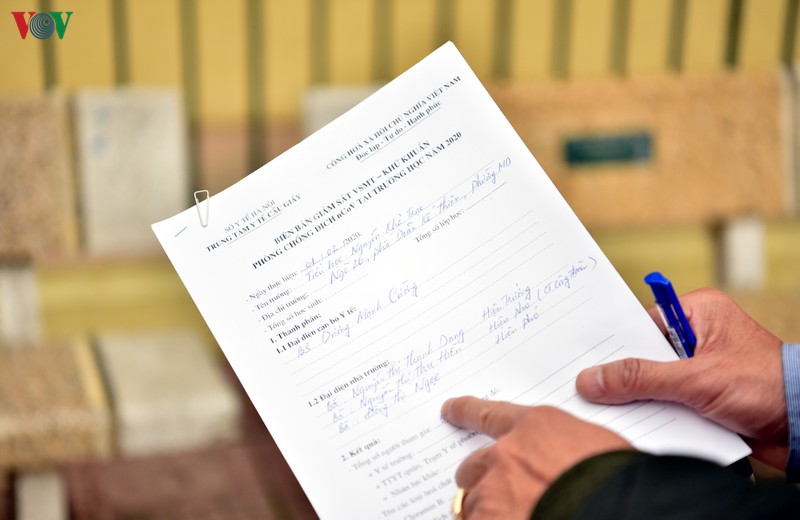 VOV
SỞ Y TẾ HÀ NỘI
TRUNG TÂM Y TẾ CẦU GIẤY
CỘNG HÒA XÃ HỘI CHỦ NGHĨA VIỆT NAM
Độc lập - Tự do - Hạnh phúc
BIÊN BẢN GIÁM SÁT VSMT – KHỬ KHUẨN
PHÒNG CHỐNG DỊCH nCoV TẠI TRƯỜNG HỌC NĂM 2020
- Ngày thực hiện: 01/02/2020.
- Tên trường: Tiểu học Nguyễn Khả Trạc
- Địa chỉ trường: Ngõ 26, phố Doãn Kế Thiện, Phường MD
- Tổng số học sinh: Tổng số lớp học:
1. Thành phần:
1.1 Đại diện cán bộ Y tế:
BS Dương Mạnh Cường
1.2 Đại diện nhà trường:
Bà: Nguyễn Thị Thanh Dung Hiệu Trưởng
Bà: Nguyễn Thị Thu Hiền Hiệu Phó
Bà: Thị Ngọc Hiệu phó
2. Kết quả:
- Tổng số người tham gia
+ Y tế trường:
+ TTYT quận, Trạm Y tế phường
+ Nhân lực khác:
- Tên các loại hoá chất
Cloramin B